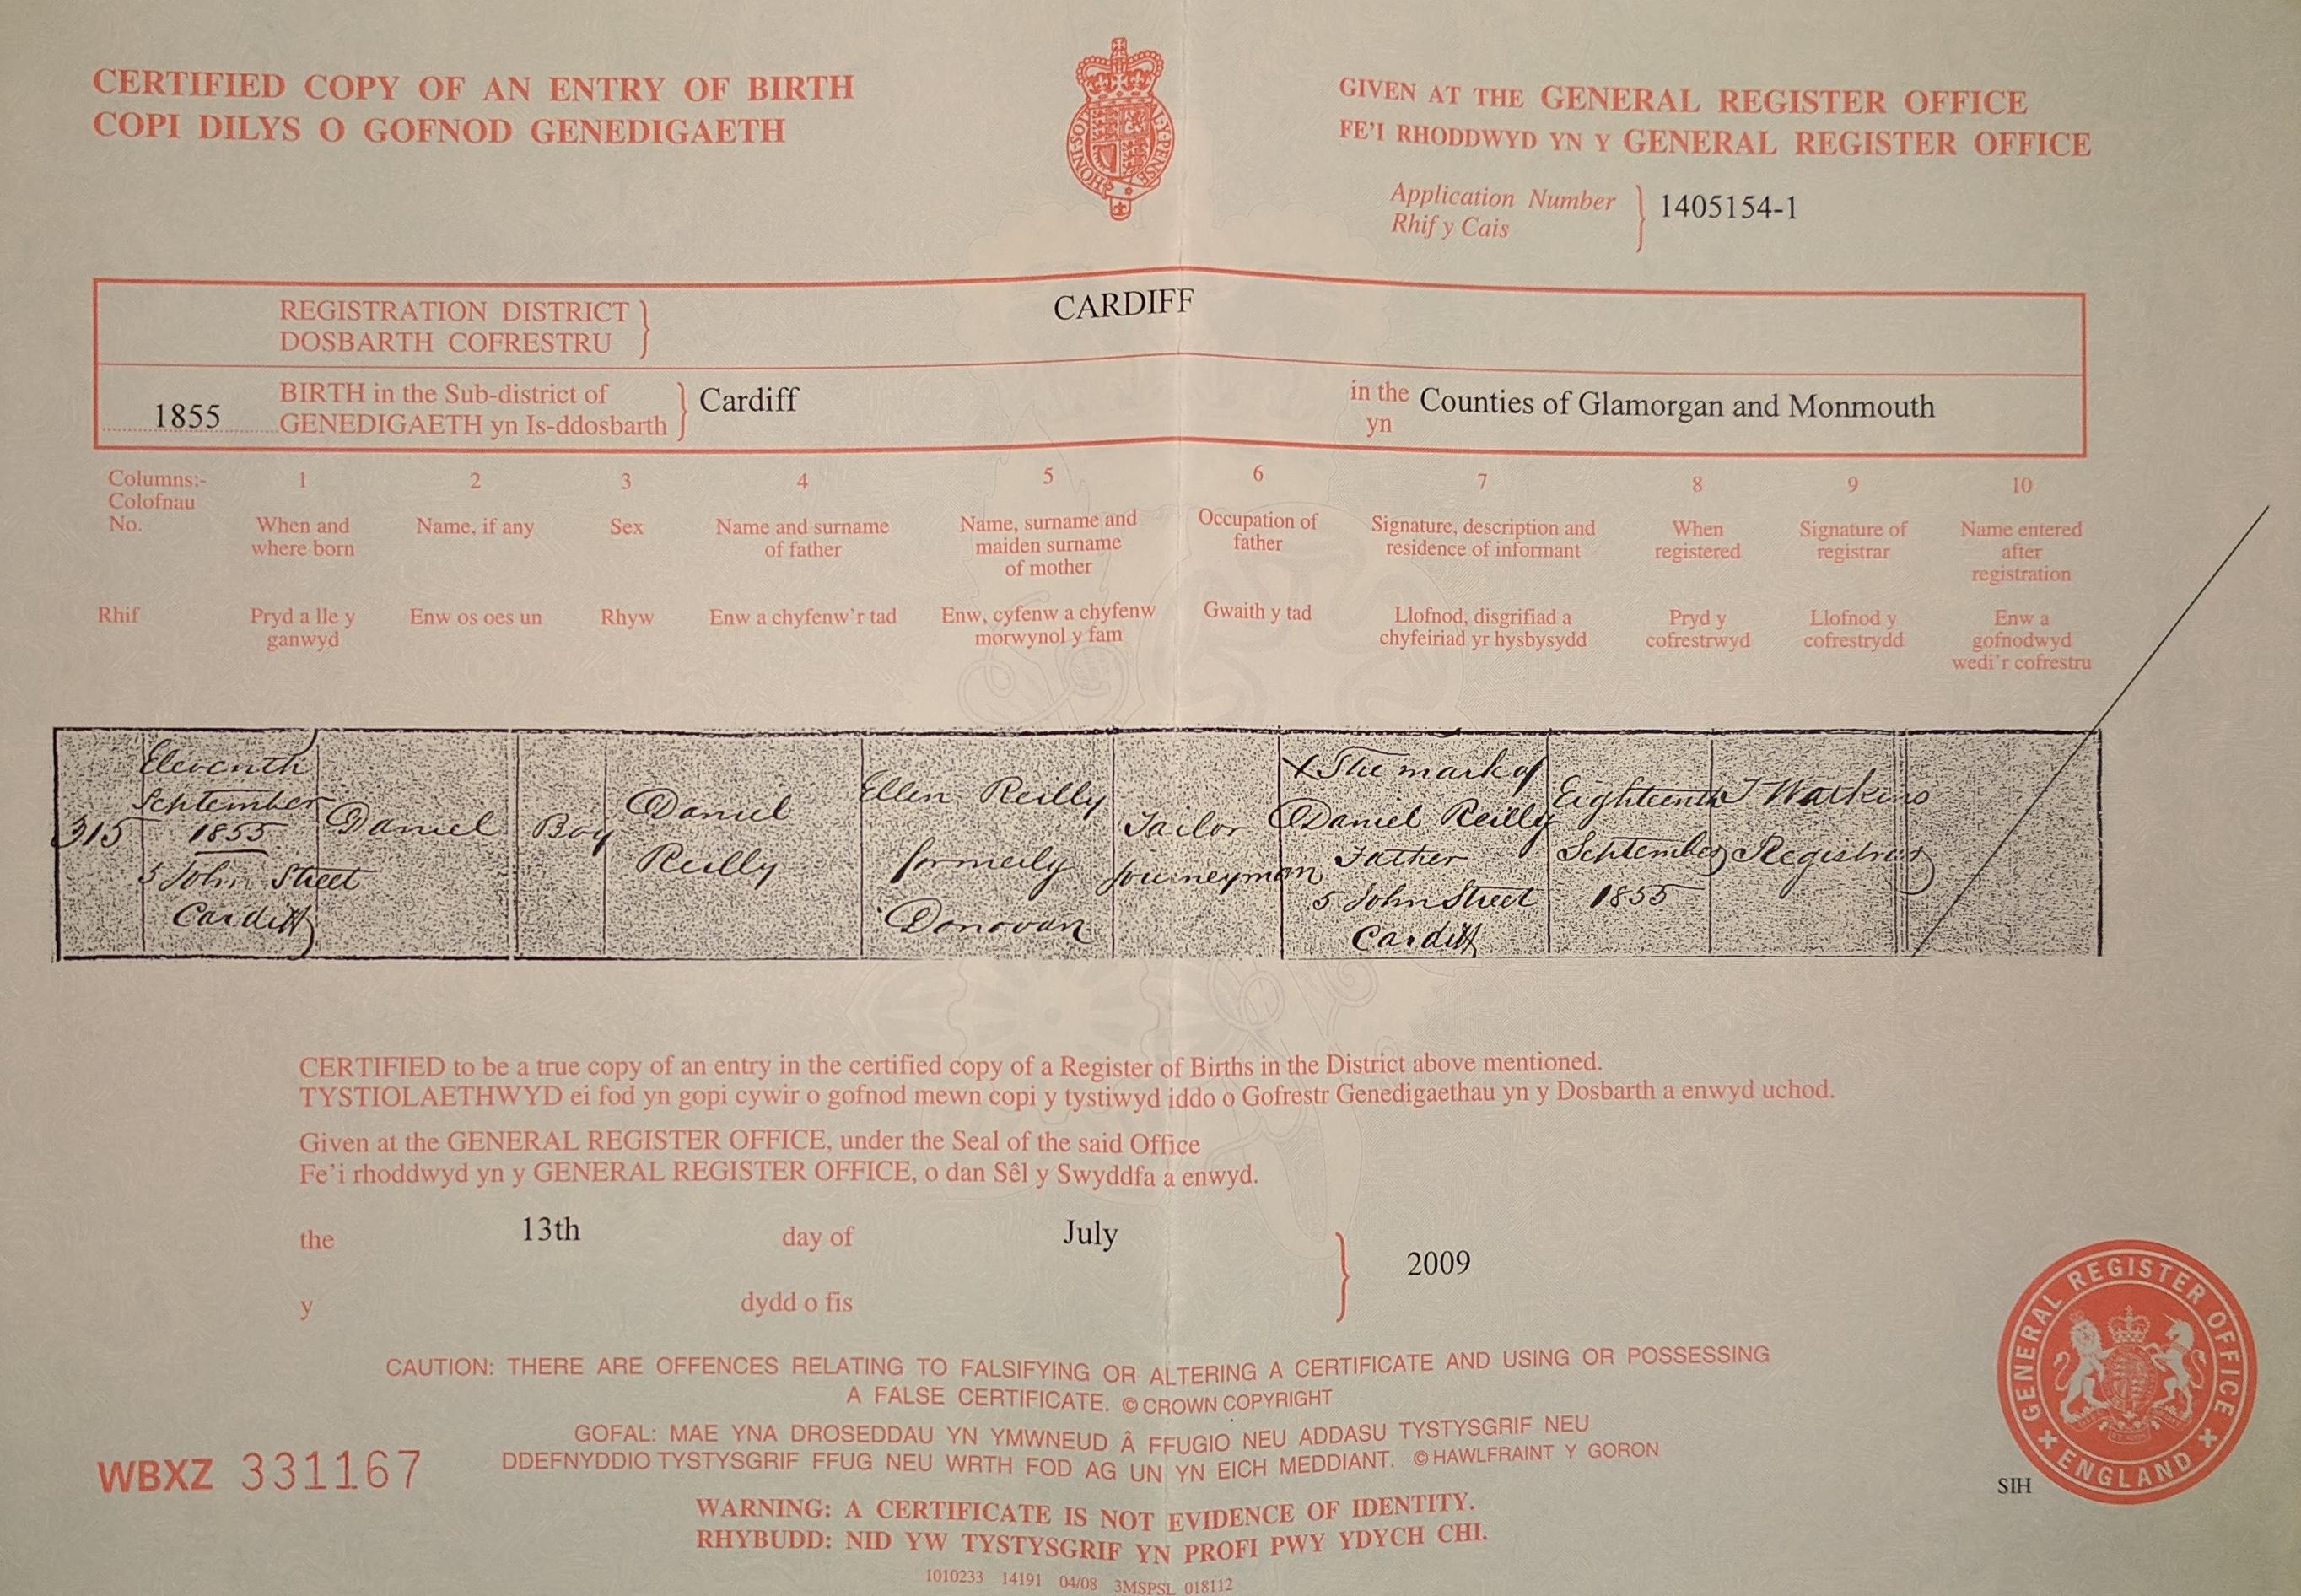 CERTIFIED COPY OF AN ENTRY OF BIRTH
COPI DILYS O GOFNOD GENEDIGAETH
HONI·SOIT
Y·PENSE
GIVEN AT THE GENERAL REGISTER OFFICE
FE'I RHODDWYD YN Y GENERAL REGISTER OFFICE
Application Number
Rhif y Cais
1405154-1
REGISTRATION DISTRICT
DOSBARTH COFRESTRU
CARDIFF
1855
BIRTH in the Sub-district of
GENEDIGAETH yn Is-ddosbarth
Cardiff
in the
yn
Counties of Glamorgan and Monmouth
Columns:-
Colofnau
No.
Rhif
1
When and
where born
Pryd a lle y
ganwyd
2
Name, if any
Enw os oes un
3
Sex
Rhyw
4
Name and surname
of father
Enw a chyfenw'r tad
5
Name, surname and
maiden surname
of mother
Enw, cyfenw a chyfenw
morwynol y fam
6
Occupation of
father
Gwaith y tad
7
Signature, description and
residence of informant
Llofnod, disgrifiad a
chyfeiriad yr hysbysydd
8
When
registered
Pryd y
cofrestrwyd
9
Signature of
registrar
Llofnod y
cofrestrydd
10
Name entered
after
registration
Enw a
gofnodwyd
wedi'r cofrestru
315
Eleventh
September
1855
5 John Street
Cardiff
Daniel
Boy
Daniel
Reilly
Ellen Reilly
formerly
Donovan
Tailor
Journeyman
X The mark of
Daniel Reilly
Father
5 John Street
Cardiff
Eighteenth
September
1855
J Watkins
Registrar
CERTIFIED to be a true copy of an entry in the certified copy of a Register of Births in the District above mentioned.
TYSTIOLAETHWYD ei fod yn gopi cywir o gofnod mewn copi y tystiwyd iddo o Gofrestr Genedigaethau yn y Dosbarth a enwyd uchod.
Given at the GENERAL REGISTER OFFICE, under the Seal of the said Office
Fe'i rhoddwyd yn y GENERAL REGISTER OFFICE, o dan Sêl y Swyddfa a enwyd.
the 13th day of July
y dydd o fis
2009
CAUTION: THERE ARE OFFENCES RELATING TO FALSIFYING OR ALTERING A CERTIFICATE AND USING OR POSSESSING
A FALSE CERTIFICATE. © CROWN COPYRIGHT
GOFAL: MAE YNA DROSEDDAU YN YMWNEUD Â FFUGIO NEU ADDASU TYSTYSGRIF NEU
DDEFNYDDIO TYSTYSGRIF FFUG NEU WRTH FOD AG UN YN EICH MEDDIANT. © HAWLFRAINT Y GORON
WBXZ 331167
WARNING: A CERTIFICATE IS NOT EVIDENCE OF IDENTITY.
RHYBUDD: NID YW TYSTYSGRIF YN PROFI PWY YDYCH CHI.
1010233 14191 04/08 3MSPSL 018112
SIH
GENERAL REGISTER OFFICE
ENGLAND